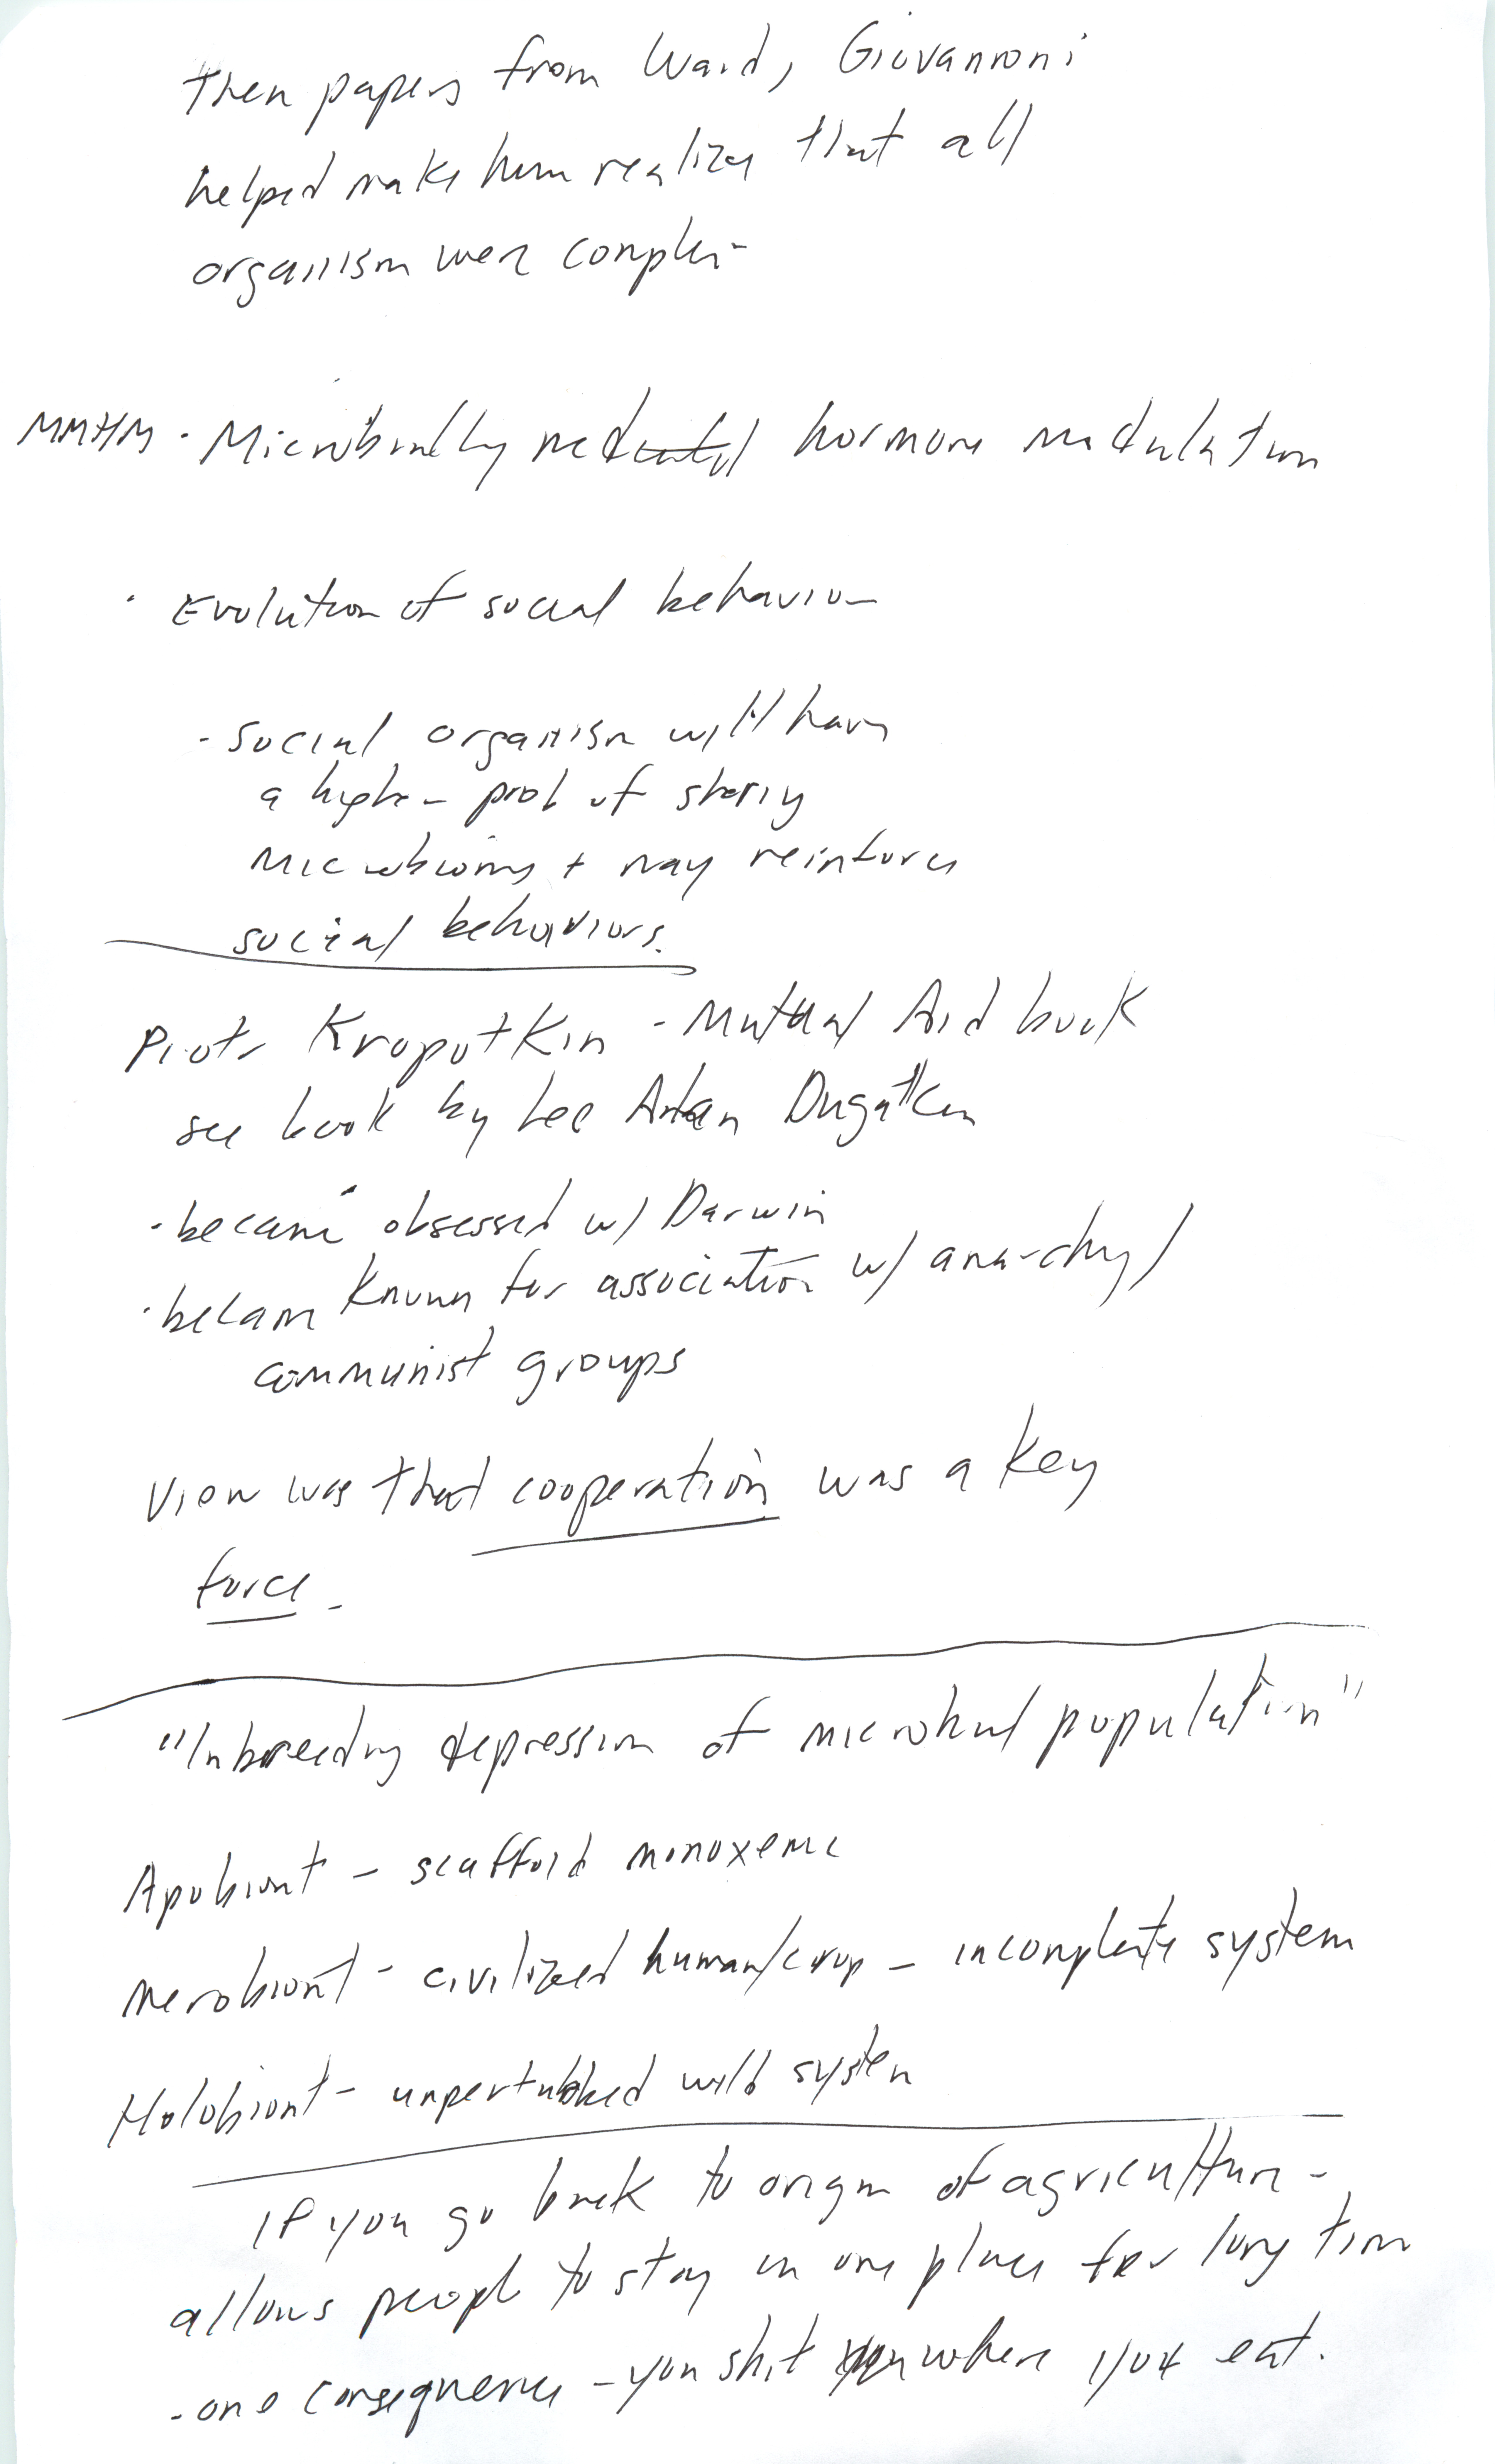 Then papers from Ward, Giovannoni
helped make him realize that all
organism were complex
MMHM · Microbially mediated hormone modulation
· Evolution of social behavior
- social organism will have
a higher prob of sharing
microbioms + may reinforce
social behaviors.
Piotr Kropotkin - Mutual Aid book
see book by Lee Alan Dugatkin
· became obsessed w/ Darwin
· becam known for association w/ anarchy/
communist groups
View was that cooperation was a key
force.
"Inbreeding depression of microbial population"
Apobiont - scaffold monoxenic
Merobiont - civilized human/crop - incomplete system
Holobiont - unperturbed wild system
If you go back to origin of agriculture -
allows people to stay in one place for long time
- one consequence - you shit where you eat.